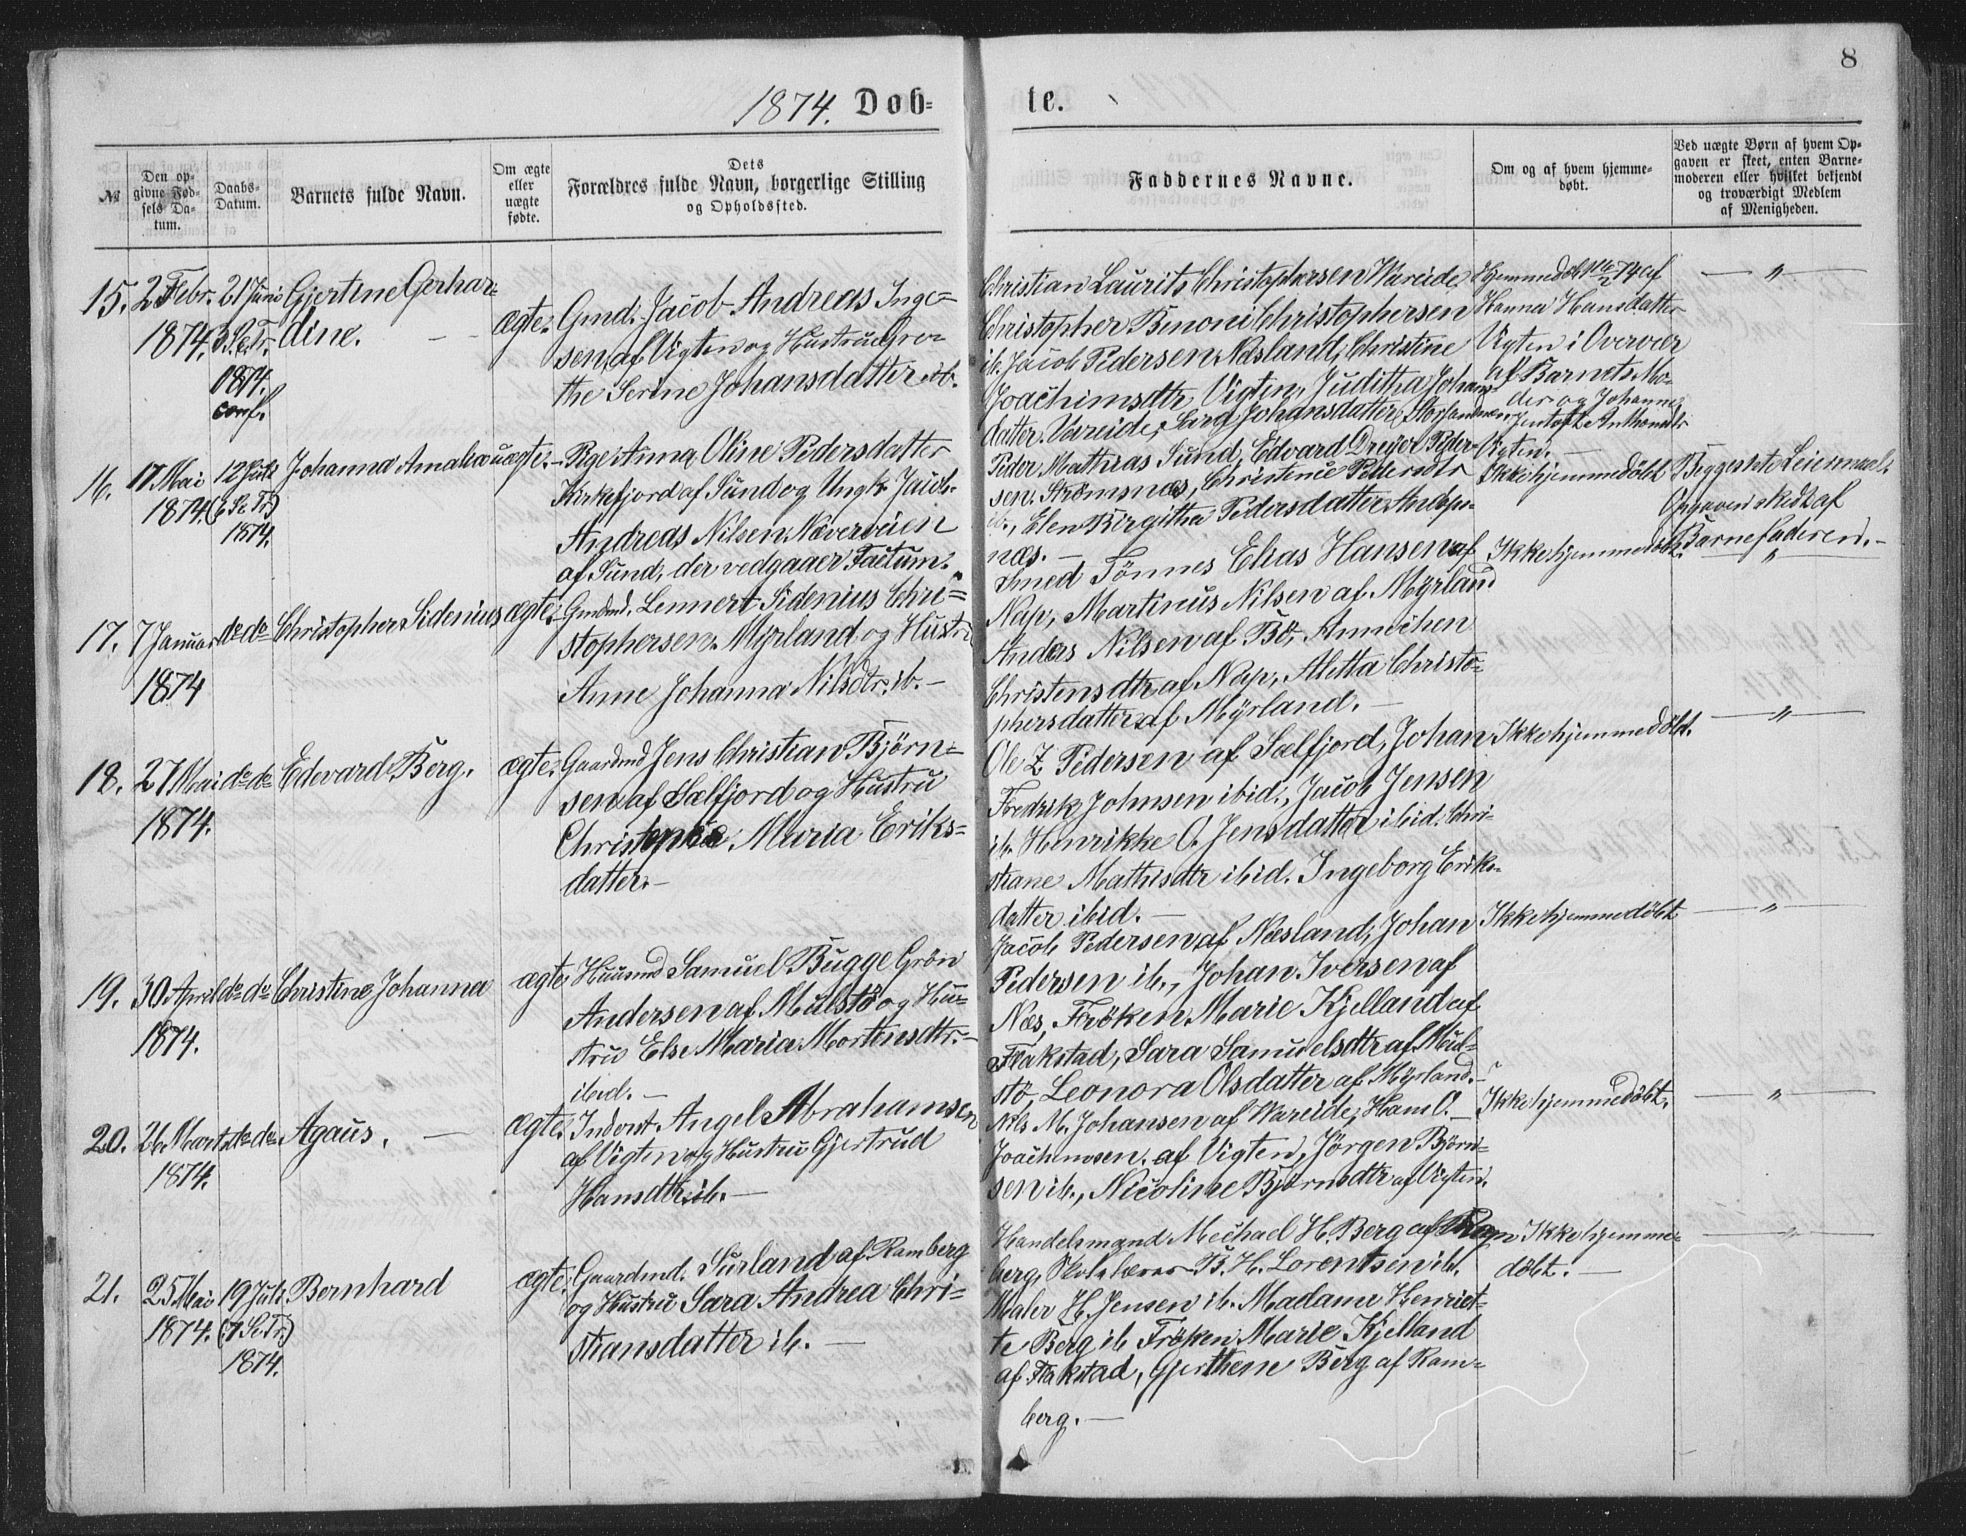 8
1874. Döb-te.
№
Den opgivne Fødsels Datum.
Daabs-Datum.
Barnets fulde Navn.
Om ægte eller uægte fødte.
Dets Forældres fulde Navn, borgerlige Stilling og Opholdssted.
Faddernes Navne.
Om og af hvem hjemmedøbt.
Ved uægte Børn af hvem Opgaven er skeet, enten Barnemoderen eller hvilket bekjendt og troværdigt Medlem af Menigheden.
15. 2 Febr. 1874.
21 Juni
3. S. e. Tr.
1874.
conf.
Gjertine Gerhar=
dine.
ægte.
Gmd. Jacob Andreas Inge=
sen af Vigten og Hustru Gre=
the Serine Johansdatter ib.
Christian Laurits Christophersen Vareide
Christopher Benoni Christophersen
ib. Jacob Pedersen Næsland, Christine
Joachimsdtr Vigten, Juditha Johans
datter Vareide, Sara Johansdatter
Hjemmedöbt 74 af
Hanna Hansdatter
Vigten i Overvær
af Barnets Mo-
der og Johannes
Jentoft Anthonsdtr
Vigten. —
— " —
16. 17 Mai
1874.
12 Juli
(6 S. e. Tr.)
1874.
Johanna Amalia
uægte.
Pige Anna Oline Pedersdatter
Kirkefjord af Sund og Ungk. Jacob
Andreas Nilsen Næverveien
af Sund, der vedgaaer Factum.
Peder Mathias Sund, Edvard Dreyer Peder-
sen Strømsnæs, Christence Pedersdtr
ib., Elen Birgitha Pedersdatter
næs. —
Ikke hjemmedöbt
Begges 1ste Leiermaal.
Opgaven skedt af
Barnefaderen. —
17. 7 Januar
1874
do do
Christopher Sidenius
ægte.
Gmdmd. Lennert Sidenius Chri=
stophersen Myrland og Hustru
Anne Johanna Nilsdtr. ib. —
Smed Tønnes Elias Hansen af
Nap, Martinus Nilsen af Myrland
Anders Nilsen af Bö, Annichen
Christensdtr af Nap, Aletta Christo=
phersdatter af Myrland. —
Ikke hjemmedöbt.
"
18. 27 Mai
1874.
do do
Edevard Berg.
ægte.
Gaardmd Jens Christian Björn=
sen af Sælfjord og Hustru
Maria Eriks=
datter. —
Ole Z Pedersen af Sælfjord, Johan
Fredrik Johnsen ibid., Jacob Jensen
ib. Henrikke O. Jensdatter ibid. Chri-
stiane Mathisdtr ibid. Ingeborg Eriks-
datter ibid. —
Ikke hjemmedöbt.
— " —
19. 30 April
1874.
do do
Christine Johanna
ægte
Huusmd Samuel Bugge Grön
Andersen af Mulstö og Hu=
stru Else Maria Mortensdtr. —
ibid. —
Jacob Pedersen af Næsland, Johan
Pedersen ib., Johan Iversen af
Næs, Fröken Marie Kjelland af
Flakstad, Sara Samuelsdtr af Mul-
stö, Leonora Olsdatter af Myrland. —
Ikke hjemmedöbt
— " —
20. 26 Marts
1874.
do do
Agaus. —
ægte.
Inderst Angel Abrahamsen
af Vigten og Hustru Gjertrud
Hansdtr. ib. —
Nils M. Johansen af Vareide, Hans O. —
Joachimsen af Vigten, Jörgen Björn-
sen ib., Nicoline Björnsdtr af Vigten.
Ikke hjemmedöbt.
— " —
21. 25 Mai
1874.
19 Juli
(7 S. e. Tr.)
1874.
Bernhard
ægte.
Gaardmd. Surland af Ramberg
og Hustru Sara Andrea Chri=
stiansdatter ib. —
Handelsmand Mechael H. Berg af Ram
berg, Skolelærer B. H. Lorentsen ib.
Maler H. Jensen ib. Madame Henriet=
te Berg ib Fröken Marie Kjelland
af Flakstad, Gjerthine Berg af Ram=
berg. —
Ikke hjemme-
döbt. —
— " —